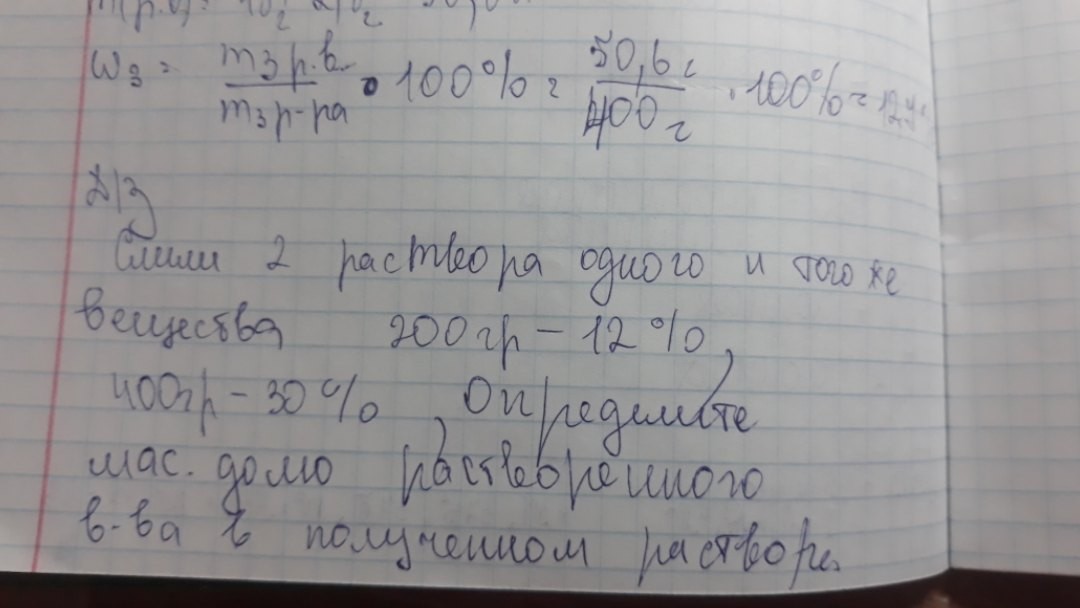 ω₃ = m₃ р.в. / m₃ р-ра • 100% = 50,6 г / 400 г · 100% =
Д/З
Слили 2 раствора одного и того же
вещества 200гр - 12%,
400гр - 30%, Определите
мас. долю растворенного
в-ва в полученном растворе.